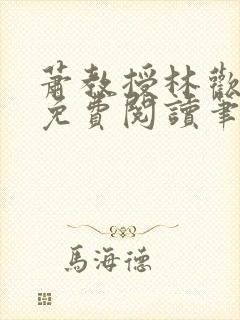 蕭教授林歡
免費閱讀筆
馬海德